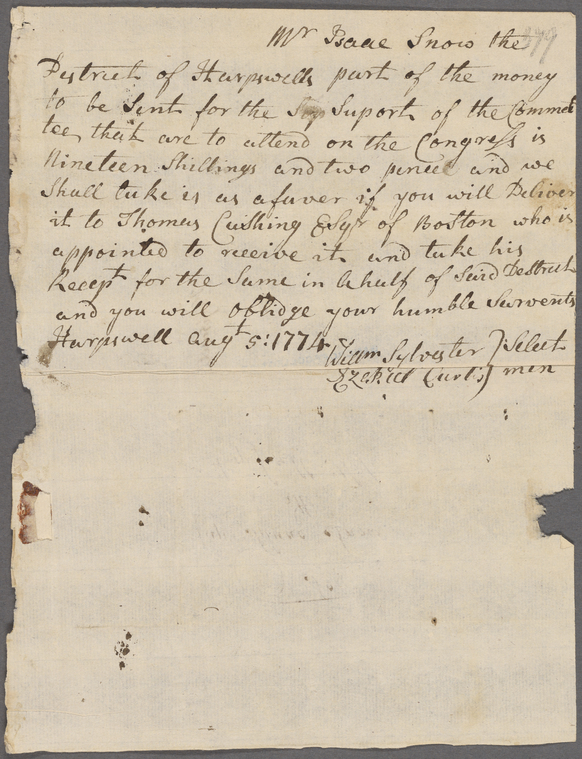 Mr Isaac Snow the 379
Destrect of Harpswells part of the money
to be Sent for the Sup Suport of the Commet
tee that are to attend on the Congress is
Nineteen Shillings and two pence and we
Shall take is as a faver if you will Deliver
it to Thomas Cushing Esqr of Boston who is
appointed to receive it and take his
Recept for the Same in behalf of Said Destrect
and you will oblidge your humble Sarvents
Harpswell augt 5: 1774
Willm Sylvester } Select
Ezekiel Curtis } men